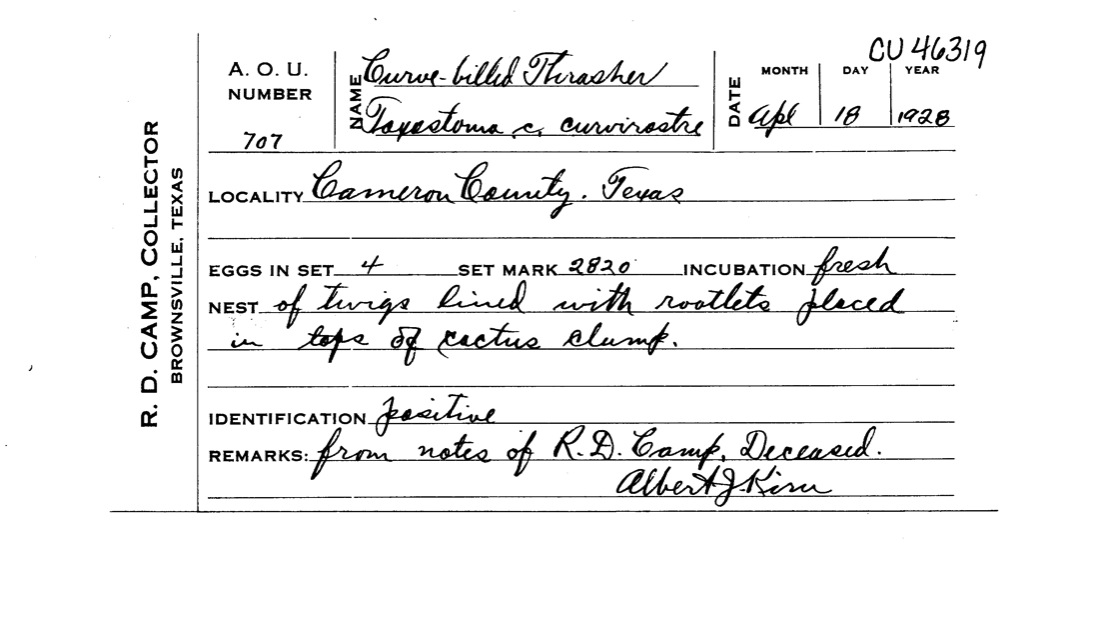 CU 46319
R. D. CAMP, COLLECTOR
BROWNSVILLE, TEXAS
A. O. U. NUMBER 707
NAME Curve-billed Thrasher
Toxostoma c. curvirostre
DATE MONTH DAY YEAR
Apl 18 1928
LOCALITY Cameron County. Texas
EGGS IN SET 4 SET MARK 2820 INCUBATION fresh
NEST of twigs lined with rootlets placed
in tops of cactus clump.
IDENTIFICATION positive
REMARKS: from notes of R.D. Camp, Deceased.
Albert J Kirn